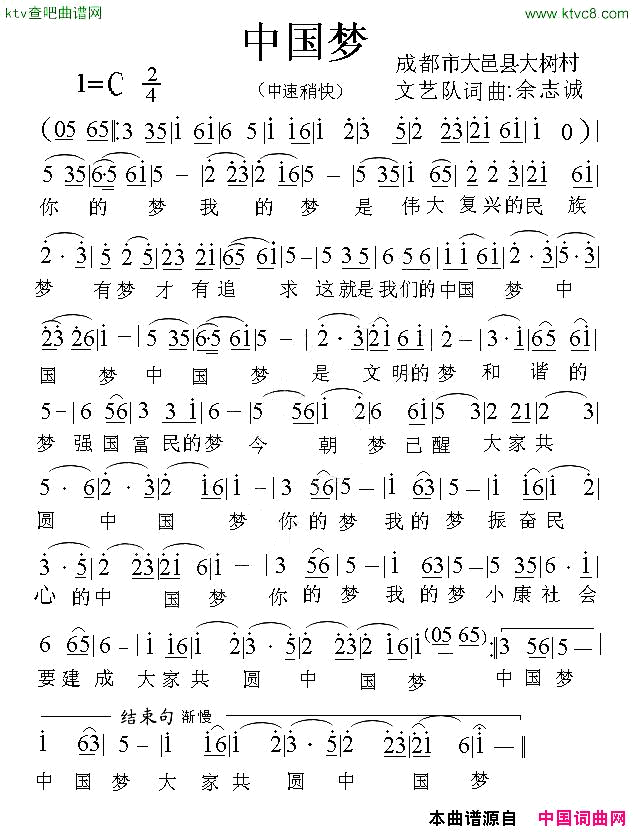 ktv查吧曲谱网 www.ktvc8.com
中国梦
1=C 2/4 (中速稍快) 成都市大邑县大树村
文艺队词曲:余志诚
(05 65|:3 35|i 6i|6 5|i i6|i 2|3 5|2 23|2i 6i|i 0)|
5 35|6·5 6i|5 -|2 23|2 i6|5 -|5 6|i 2|2 23|2i 6i|
你 的 梦 我 的 梦 是 伟大 复兴的民 族
2·3|2 5|23 2i|65 6i|5 -|5 3 5|6 5 6|i i6|i 2|5·3|
梦 有梦 才有追 求 这就是我们的中国 梦 中
23 26|i -|5 35|6·5 6i|5 -|2·3|2i 6i|2 -|3·i|65 6|
国 梦 中 国 梦 是 文 明的 梦 和 谐 的
5 -|6 56|3 3 i|6 -|5 56|i 2|6 6i|5 2 2i|2 3|
梦 强国富民的梦 今 朝 梦 已醒 大家共
5·6|2·3|2 i6|i -|3 56|5 -|i 63|5 -|i i6|i 2|
圆 中 国 梦 你的梦 我的梦 振奋民
3·5|2 23|2i 6|i -|3 56|5 -|i 63|5 -|i 63|5 i|
心 的中 国 梦 你 的 梦 我 的 梦 小康社会
6 65|6 -|i i6|i 2|3·5|2 23|2 i6|i(05 65):|3 56|5 -|
要建成 大家共 圆 中 国 梦 中国梦
结束句 渐慢
i 63|5 -|i i6|i 2|3·5|2 23|2i 6|i -‖
中国梦 大家共 圆 中 国 梦
本曲谱源自 中国词曲网